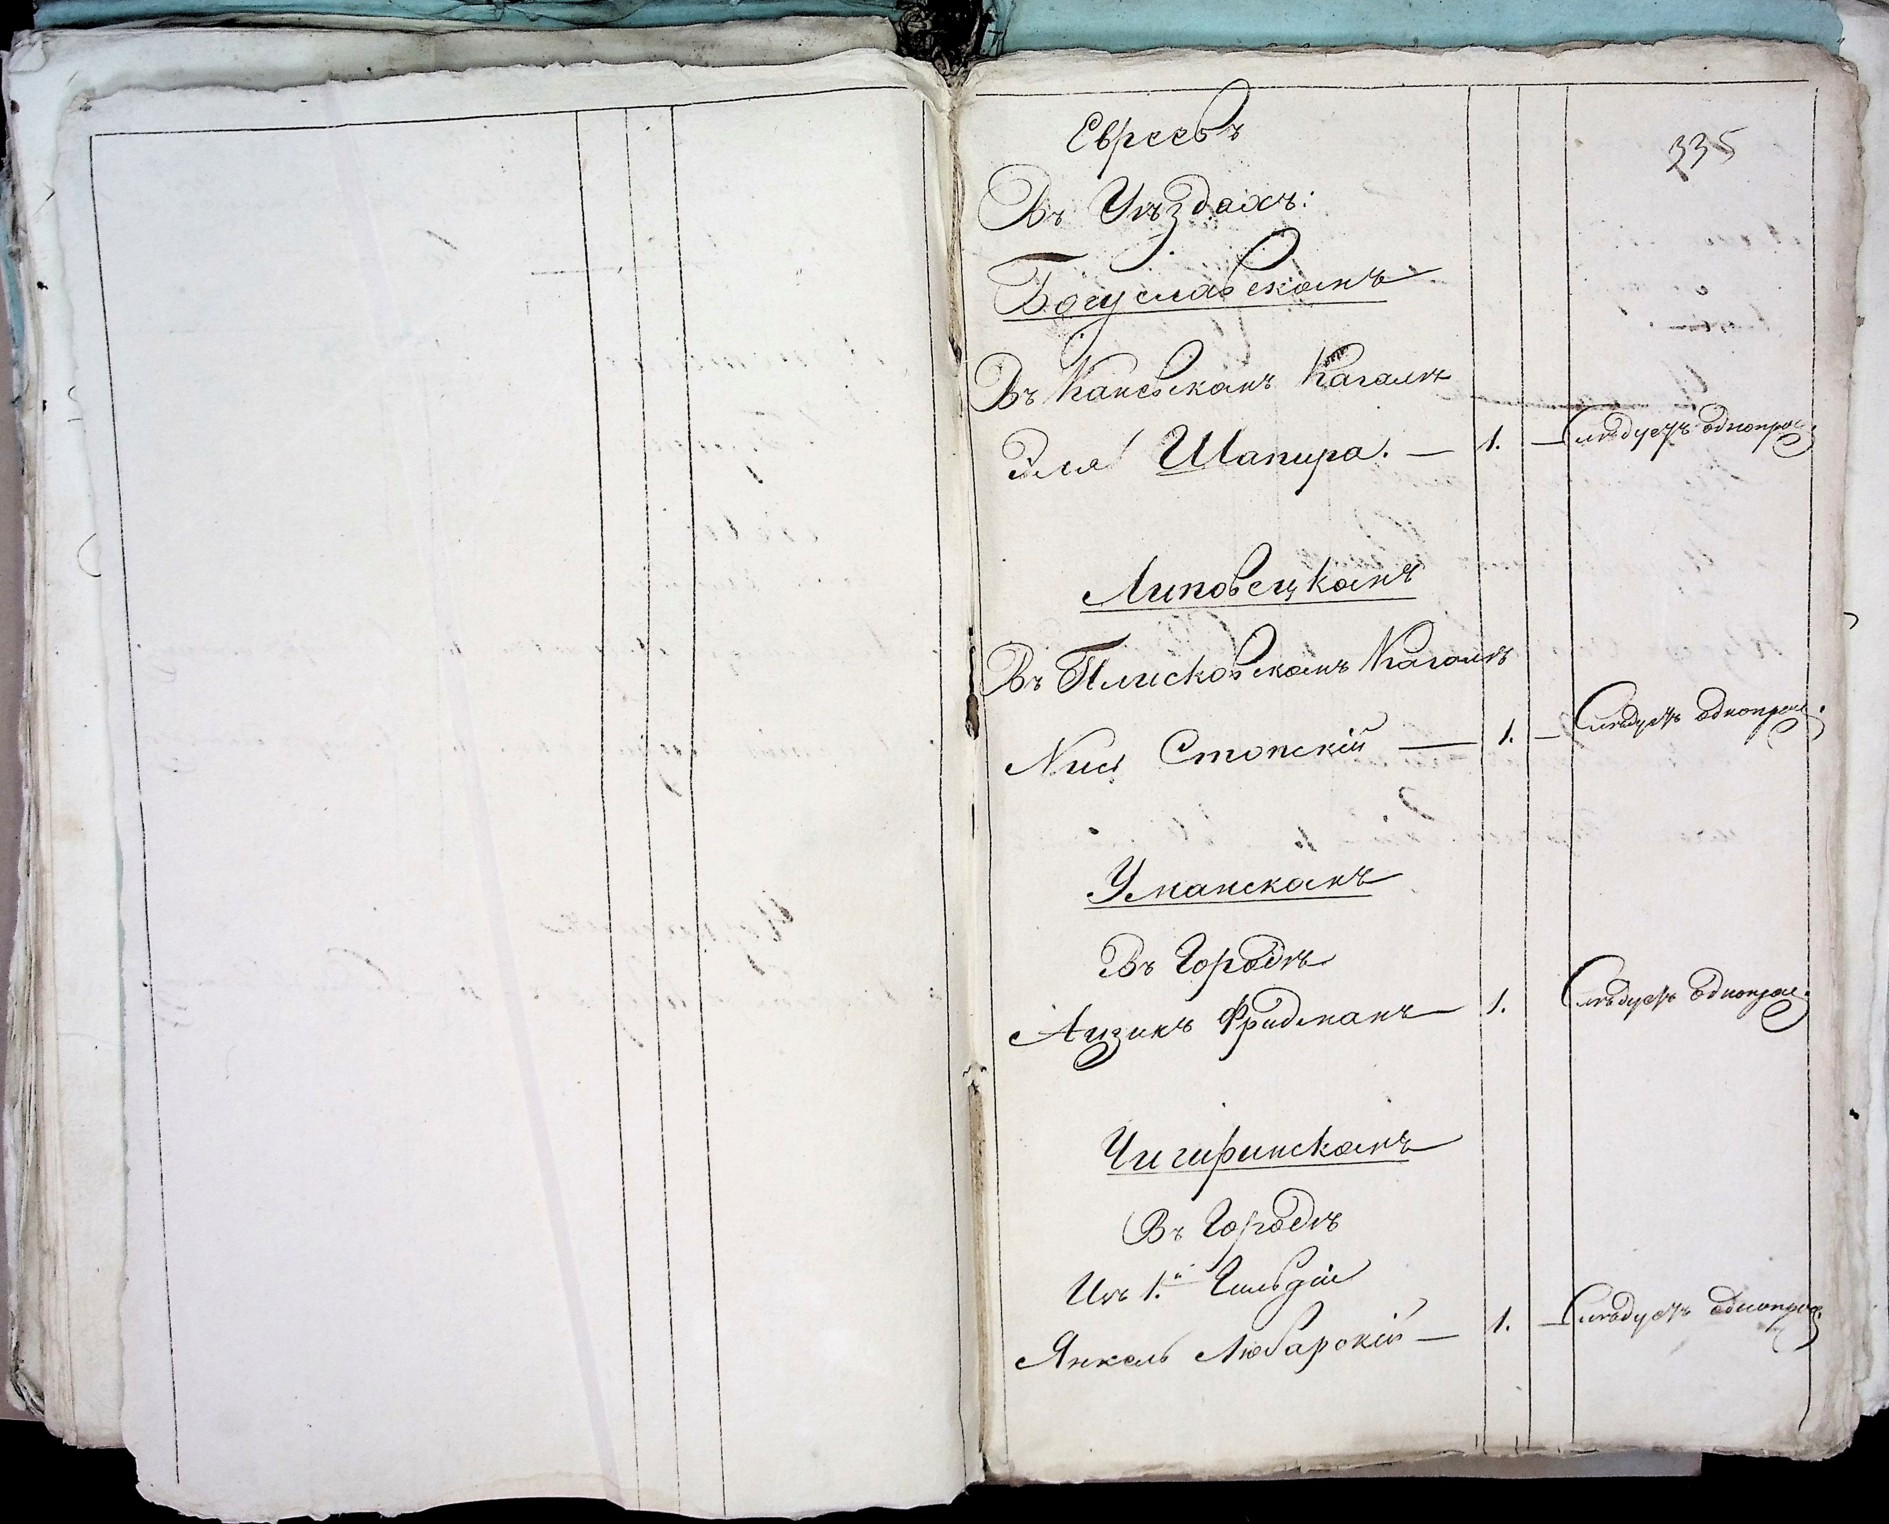 Евреевъ
335
Въ Уѣздахъ:
Богуславскомъ
Въ Каневскомъ Кагалѣ
Эля Шапира. — 1. — Слѣдуетъ однопрос.
Липовецкомъ
Въ Плисковскомъ Кагалѣ
Стопскій — 1. — Слѣдуетъ однопрос.
Уманскомъ
Въ Городѣ
Аизикъ Фридманъ — 1. Слѣдуетъ однопрос.
Чигиринскомъ
Въ Городѣ
Изъ 1.й Гильдіи
Янкель Любарскій — 1. — Слѣдуетъ однопрос.